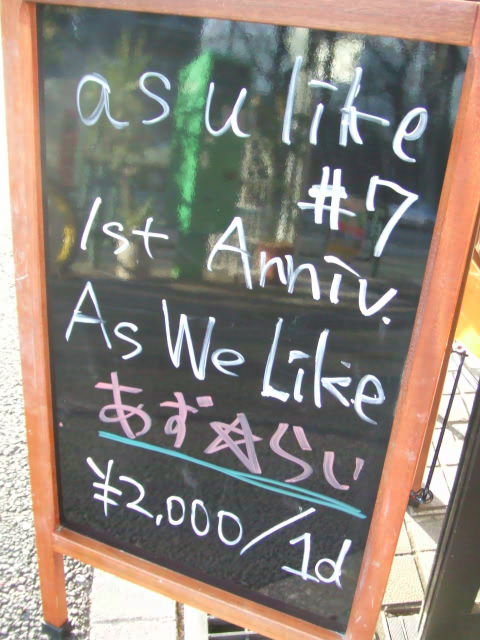 as u like
#7
1st Anniv.
As We Like
あず☆らい
¥2,000/1d